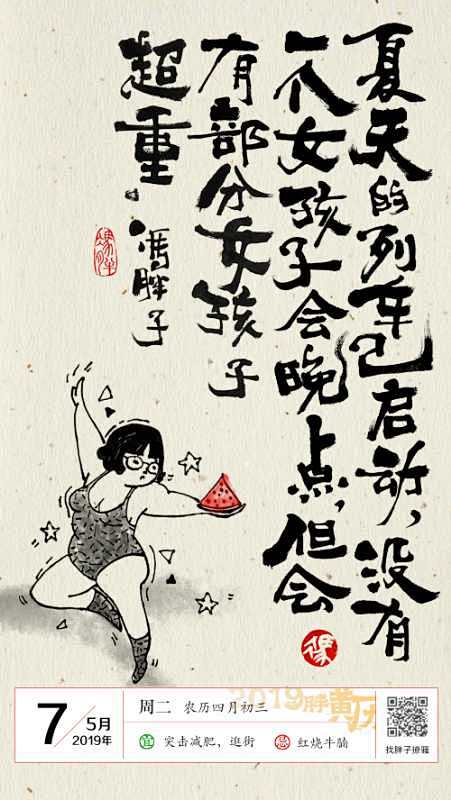 夏天的列车已启动，没有
一个女孩子会晚点，但会
有部分女孩子
超重。
馮胖子
7
5月
2019年
周二 农历四月初三
2019胖黄历
宜 突击减肥，逛街
忌 红烧牛腩
找胖子撩骚